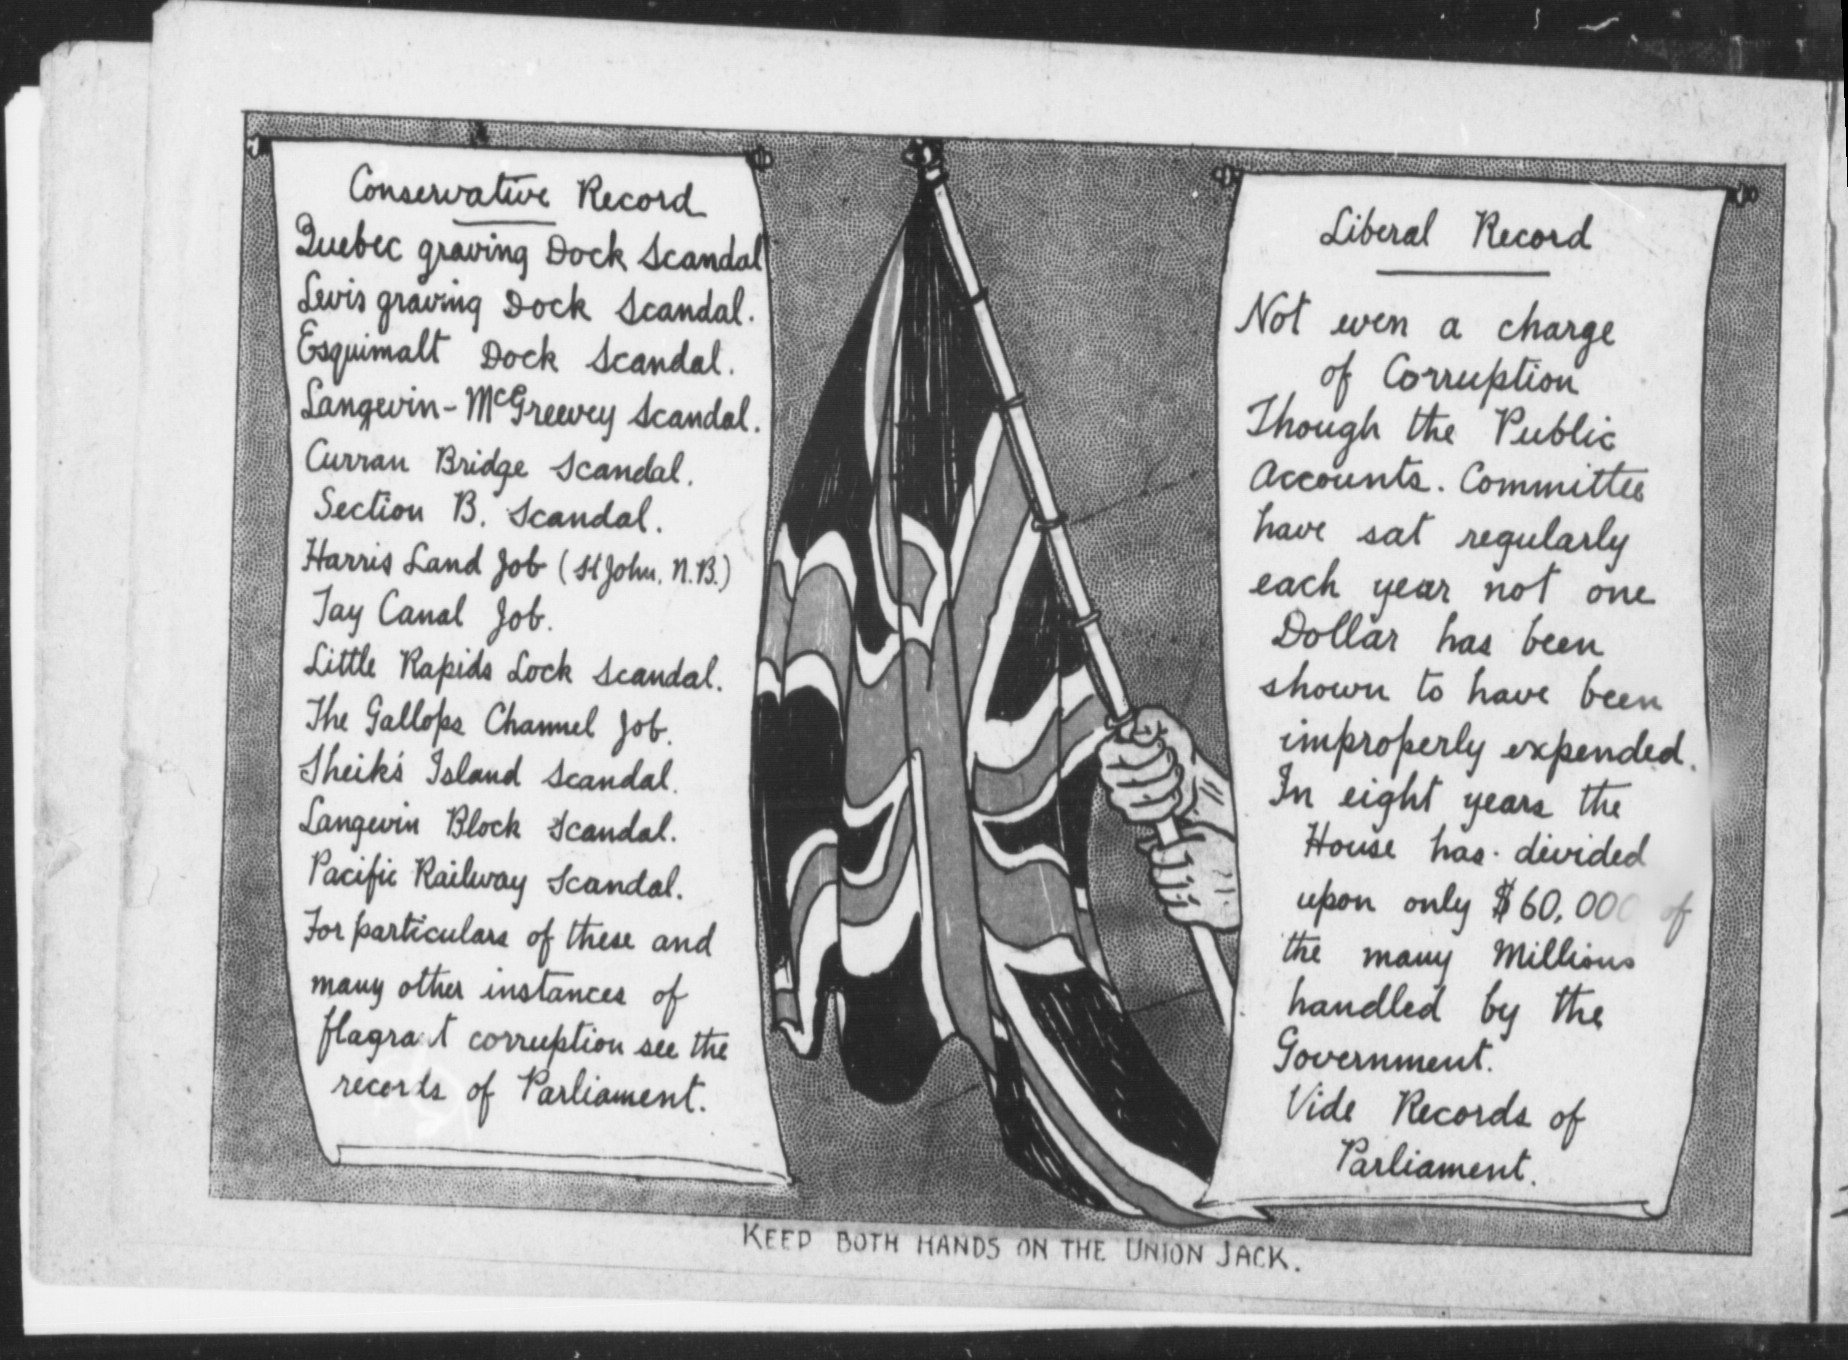 Conservative Record
Quebec graving Dock Scandal
Levis graving Dock Scandal.
Esquimalt Dock Scandal.
Langevin-McGreevey Scandal.
Curran Bridge Scandal.
Section B. Scandal.
Harris Land Job (St John, N.B.)
Tay Canal Job.
Little Rapids Lock Scandal.
The Gallops Channel Job.
Sheik's Island Scandal.
Langevin Block Scandal.
Pacific Railway Scandal.
For particulars of these and
many other instances of
flagrant corruption see the
records of Parliament.
Liberal Record
Not even a charge
of Corruption
Though the Public
Accounts. Committee
have sat regularly
each year not one
Dollar has been
shown to have been
improperly expended.
In eight years the
House has divided
upon only $60,000 of
the many Millions
handled by the
Government.
Vide Records of
Parliament.
KEEP BOTH HANDS ON THE UNION JACK.